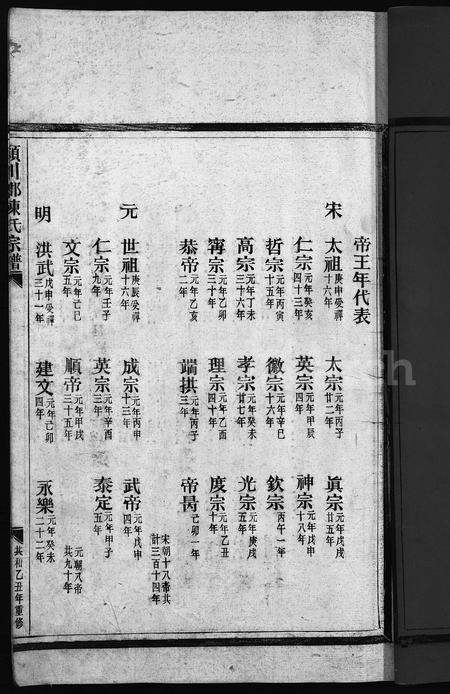 帝王年代表
宋 太祖 庚申受禪 十六年 太宗 元年丙子 廿二年 真宗 元年戊戌 廿五年
仁宗 元年癸亥 四十三年 英宗 元年甲辰 四年 神宗 元年戊申 十八年
哲宗 元年丙寅 十五年 徽宗 元年辛巳 十六年 欽宗 丙午一年
高宗 元年丁未 三十六年 孝宗 元年癸未 廿七年 光宗 元年庚戌 五年
寗宗 元年乙卯 三十年 理宗 元年乙酉 四十年 度宗 元年乙丑 十年
恭帝 元年乙亥 二年 端拱 元年丙子 三年 帝昺 己卯一年
宋朝十八帝共計三百十四年
元 世祖 庚辰受禪 十六年 成宗 元年丙申 十三年 武帝 元年戊申 四年
仁宗 元年壬子 九年 英宗 元年辛酉 三年 泰定 元年甲子 五年
文宗 元年己巳 五年 順帝 元年甲戌 三十五年 元朝八帝共九十年
明 洪武 戊申受禪 三十一年 建文 元年己卯 四年 永樂 元年癸未 二十二年
潁川郡陳氏宗譜
共和乙丑年重修